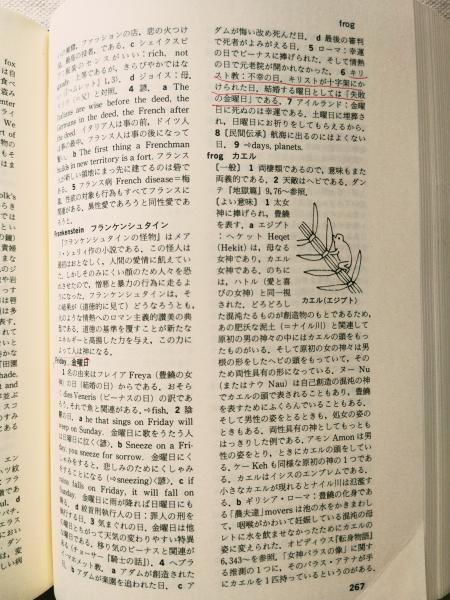 frog
fox
ファッションの店，恋の火つけ
物の役者，である．c シェイクスピ
華美のセンスがいい：rich, not
gaudy 上等であるが，きらびやかではな
『ハムレット』1, 3). d ジョイス：母，
と対照．4 諺．a The
Italians are wise before the deed, the
Germans in the deed, the French after
the deed. イタリア人は事の前，ドイツ人
フランス人は事の後になって
は事の最中，
b The first thing a Frenchman
builds in new territory is a fort. フランス
人が新しい領地にまっ先に建てるのは砦で
ある．5 フランス病 French disease＝梅
毒．性欲の対象も行為もすべてフランスに
関連がある．異性愛であろうと同性愛であ
ろうと．
Frankenstein フランケンシュタイン
『フランケンシュタインの怪物』はメア
リ・シェリ作の小説である．この怪人は
最初はおとなしく，人間の愛情に飢えてい
た．しかしそのみにくい顔のため人々を恐
させたので，憎悪と暴力の行為に走るよ
うになった．フランケンシュタインは，そ
の結果が（道徳的に見て）どうなろうとも，
のような情熱へのロマン主義的讃美の典
型である．道徳の基準を覆すことが新たな
エネルギーと高揚した力を与え，この力に
よって人は神になる．
Friday 金曜日
1 名の由来はフレイア Freya（豊饒の女
神）の日（結婚の日）からである．おそら
く dies Veneris（ビーナスの日）の訳であ
ろう．それで魚と関連がある．⇨fish. 2 陰
の日．a he that sings on Friday will
weep on Sunday. 金曜日に歌をうたう人
は日曜日に泣く（諺）．b Sneeze on a Fri-
day, you sneeze for sorrow. 金曜日にく
しゃみをすると，悲しみのためにくしゃみ
をすることになる（⇨sneezing）（諺）．c if
rains falls on Friday, it will fall on
Sunday. 金曜日に雨が降れば日曜日にも
降る（諺）．d 絞首刑執行人の日：罪人の刑を
執行する日．3 気まぐれの日．金曜日は他
の曜日とちがって天気の変わりやすい特異
な曜日である．移り気のビーナスと関連が
ある（チョーサー『騎士の話』）．4 ヘブラ
イ・マホメット教．a アダムが創造された
日．b アダムが楽園を追われた日．c ア
ダムが悔い改め死んだ日．d 最後の審判
で死者がよみがえる日．5 ローマ：幸運
の日でビーナスに捧げられた．そして情熱
の日で元老院が開かれなかった．6 キリ
スト教：不幸の日．キリストが十字架にか
けられた日．結婚する曜日としては「失敗
の金曜日」である．7 アイルランド：金曜
日に死ぬのは幸運である．土曜日に埋葬さ
れ，日曜日にお祈りをしてもらえるから．
8［民間伝承］航海に出るのにはよくない
日．9 ⇨days, planets.
frog カエル
［一般］1 両棲類であるので，意味もまた
両義的である．2 天敵はヘビである．ダン
テ『地獄篇』9, 76〜参照．
［よい意味］1 太女
神に捧げられ，豊饒
を表す．a エジプト
：ヘケット Heqet
(Hekit) は，母なる
女神であり，カエル
女神である．のちに
は，ハトル（愛と喜
びの女神）と同一視
された．どろどろし
カエル（エジプト）
た混沌たるものが創造物のもとであるため，
あの肥沃な泥土（＝ナイル川）と関連して
原初の男の神々の中にはカエルの頭をもっ
たものがいる．そして原初の女の神々は男
根の形をしたヘビの頭をもっていて，その
ため両性具有の形になっている．ヌー Nu
（またはナウ Nau）は自己創造の混沌の神
でカエルの頭で表されることもあり，豊饒
を表すためにふくらんでいることもある．
そして男性の姿をとるときも，処女の姿の
ときもある．両性具有の神としてもっとも
はっきりした例である．アモン Amon は男
性の姿をとり，ときにカエルの頭をしてい
る．ケー Keh も同様な原初の神の1つであ
る．カエルはイシスのエンブレムである．
小さなカエルが現れるとナイル川は氾濫す
る．b ギリシア・ローマ：豊饒の化身であ
る「農夫達」movers は池の水をかきまわし
て，咽喉がかわいて妊娠している混沌の母
レトに水を飲ませなかったためにカエルの
姿に変えられた．オビディウス『転身物語』
6, 343〜を参照．「女神パラスの像」に関す
る推測の1つに，そのパラス・アテナが手
にカエルを1匹持っているというのがある．
267